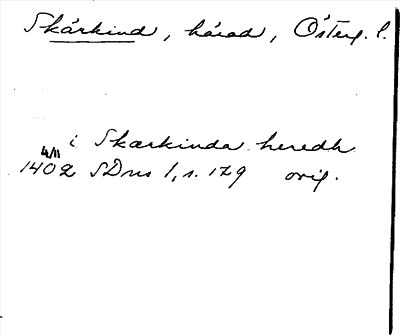 Skärkind, härad, Österg. l.
i Skærkinda heredh
4/11
1402 SDns 1, s. 179 orig.